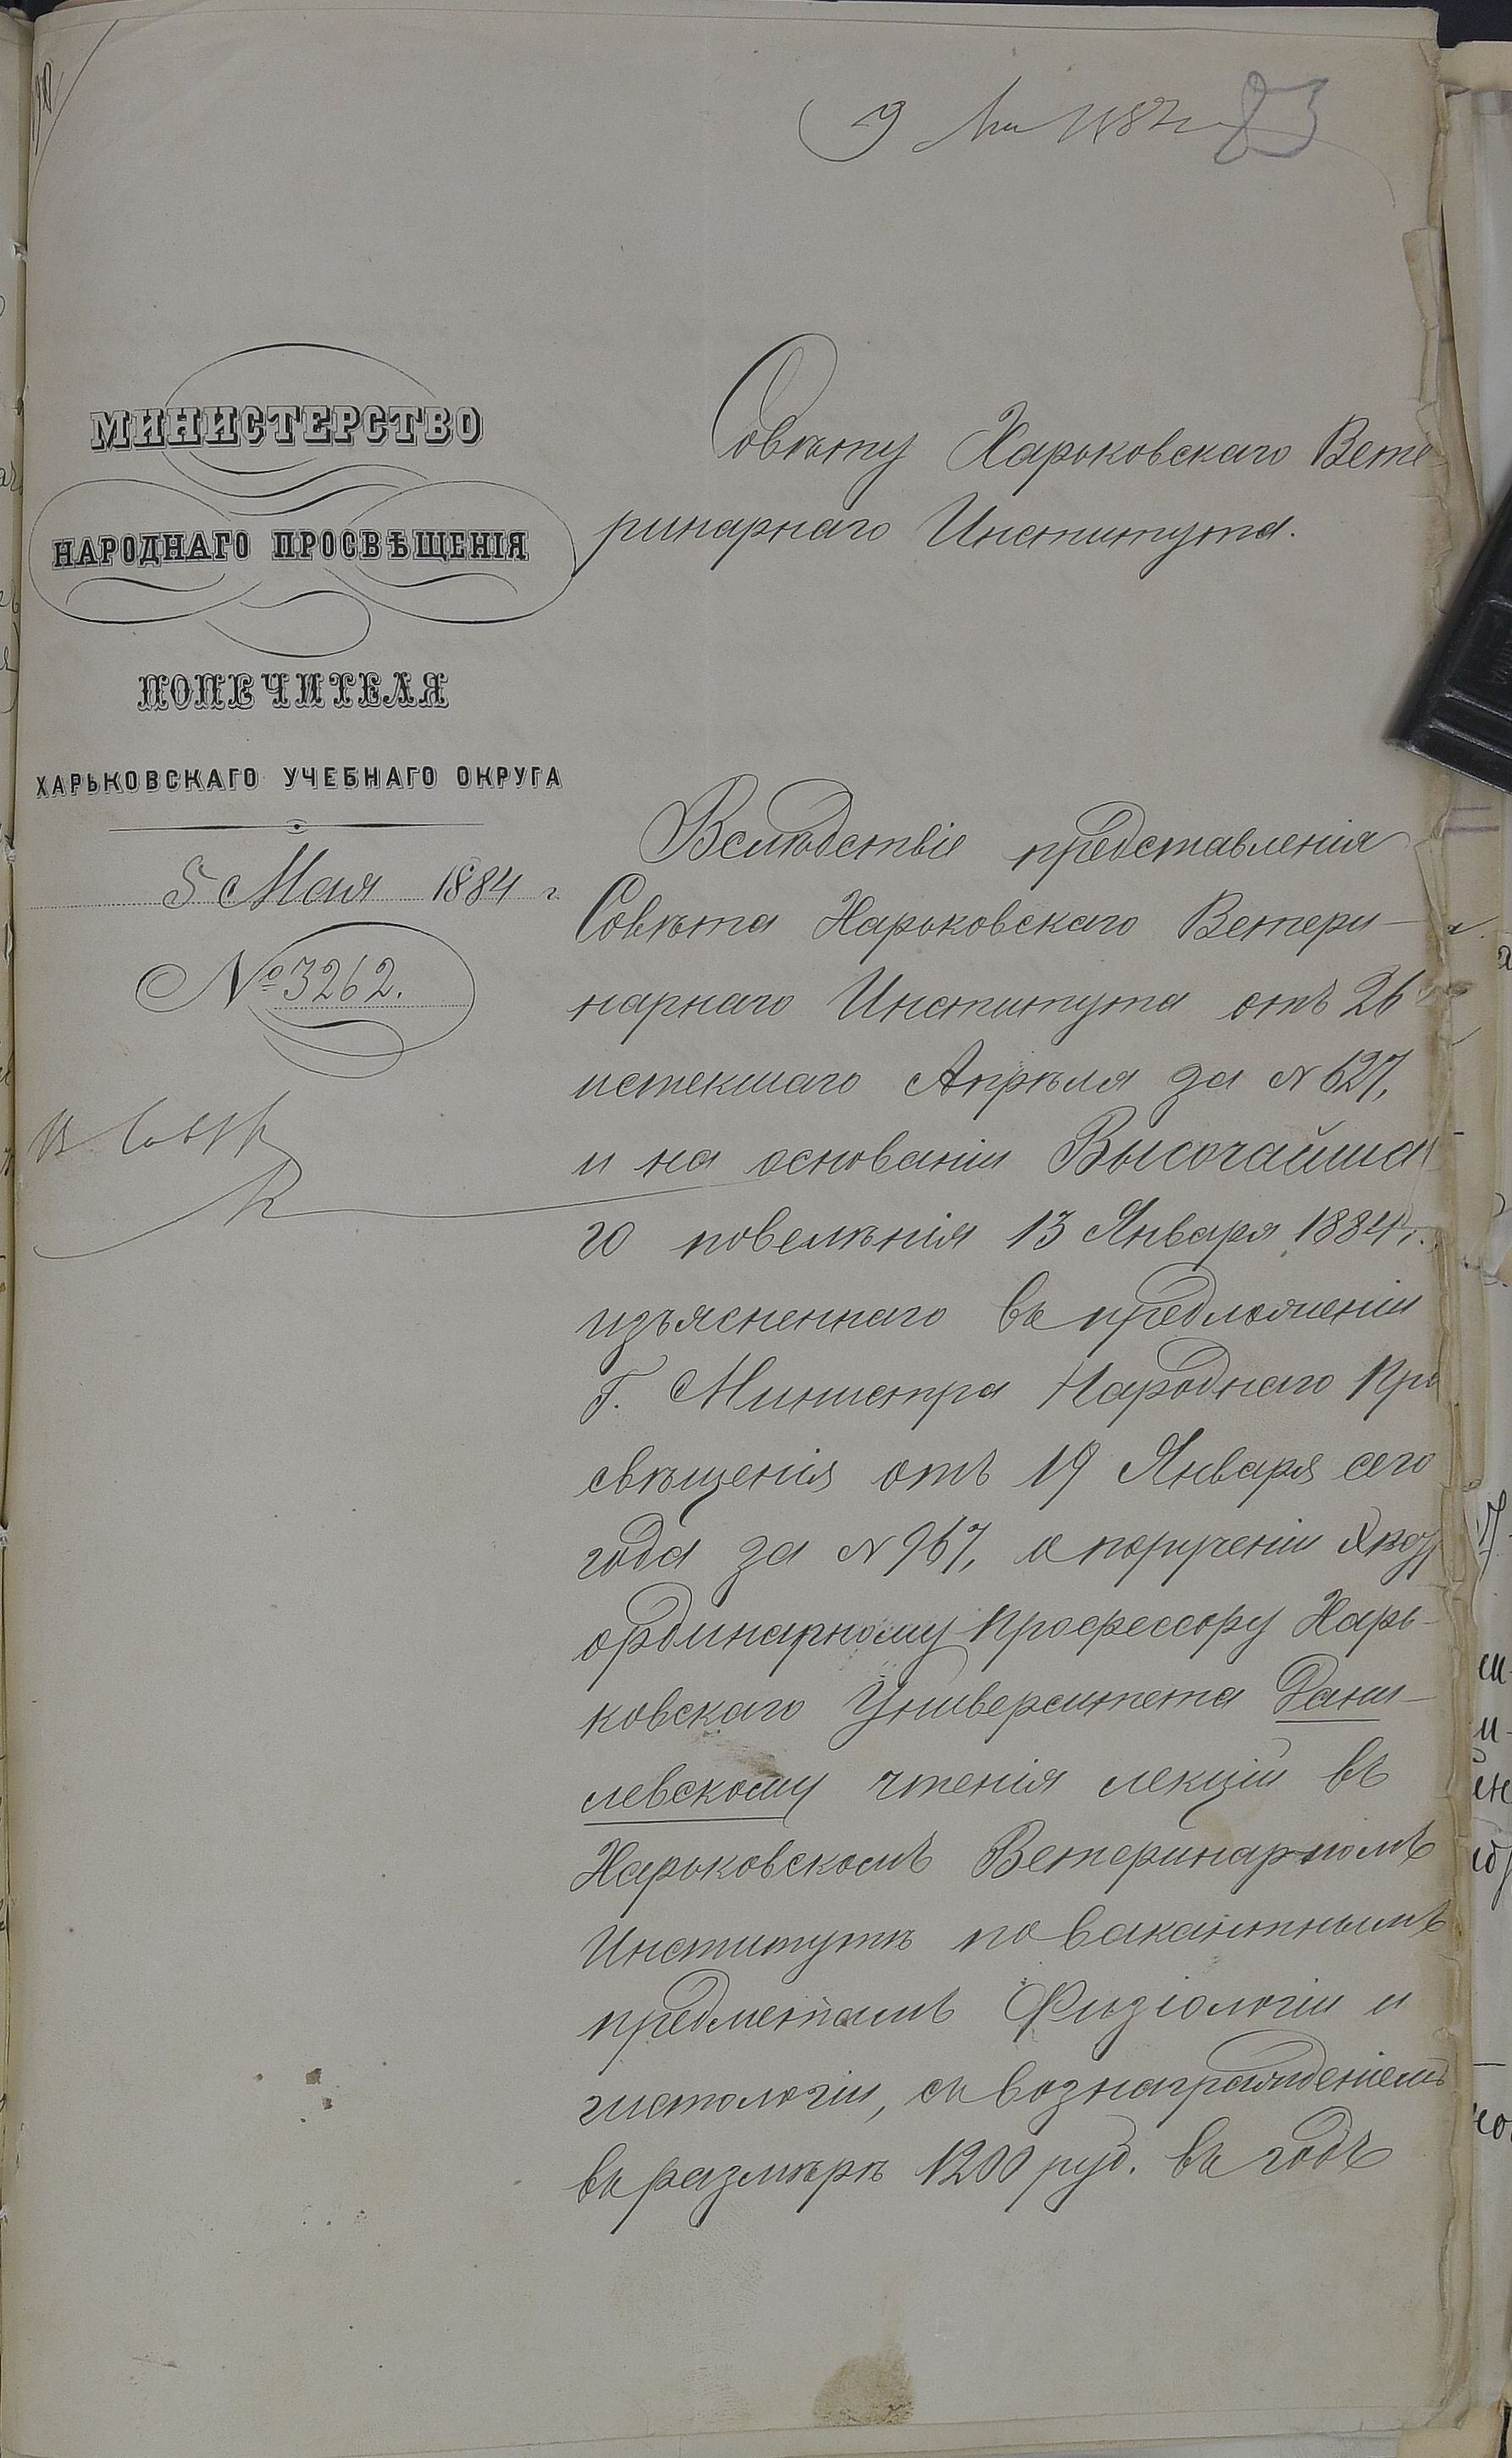 83
МИНИСТЕРСТВО
НАРОДНАГО ПРОСВѢЩЕНІЯ
ПОПЕЧИТЕЛЯ
ХАРЬКОВСКАГО УЧЕБНАГО ОКРУГА
5 Мая 1884 г.
№ 3262.
Совѣту Харьковскаго Вете-
ринарнаго Института.
Вслѣдствіе представленія
Совѣта Харьковскаго Ветери-
нарнаго Института отъ 26
истекшаго Апрѣля за № 627,
и на основаніи Высочайша
го повелѣнія 13 Января 1884 г.
изъясненнаго въ предложеніи
Г. Министра Народнаго Про
свѣщенія отъ 19 Января сего
года за № 967, о порученіи
ординарному профессору Харь-
ковскаго Университета Дани-
левскому чтенія лекцій въ
Харьковскомъ Ветеринарномъ
Институтѣ по вакантнымъ
предметамъ Физіологіи и
гистологіи, съ вознагражденіемъ
въ размѣрѣ 1200 руб. въ годъ